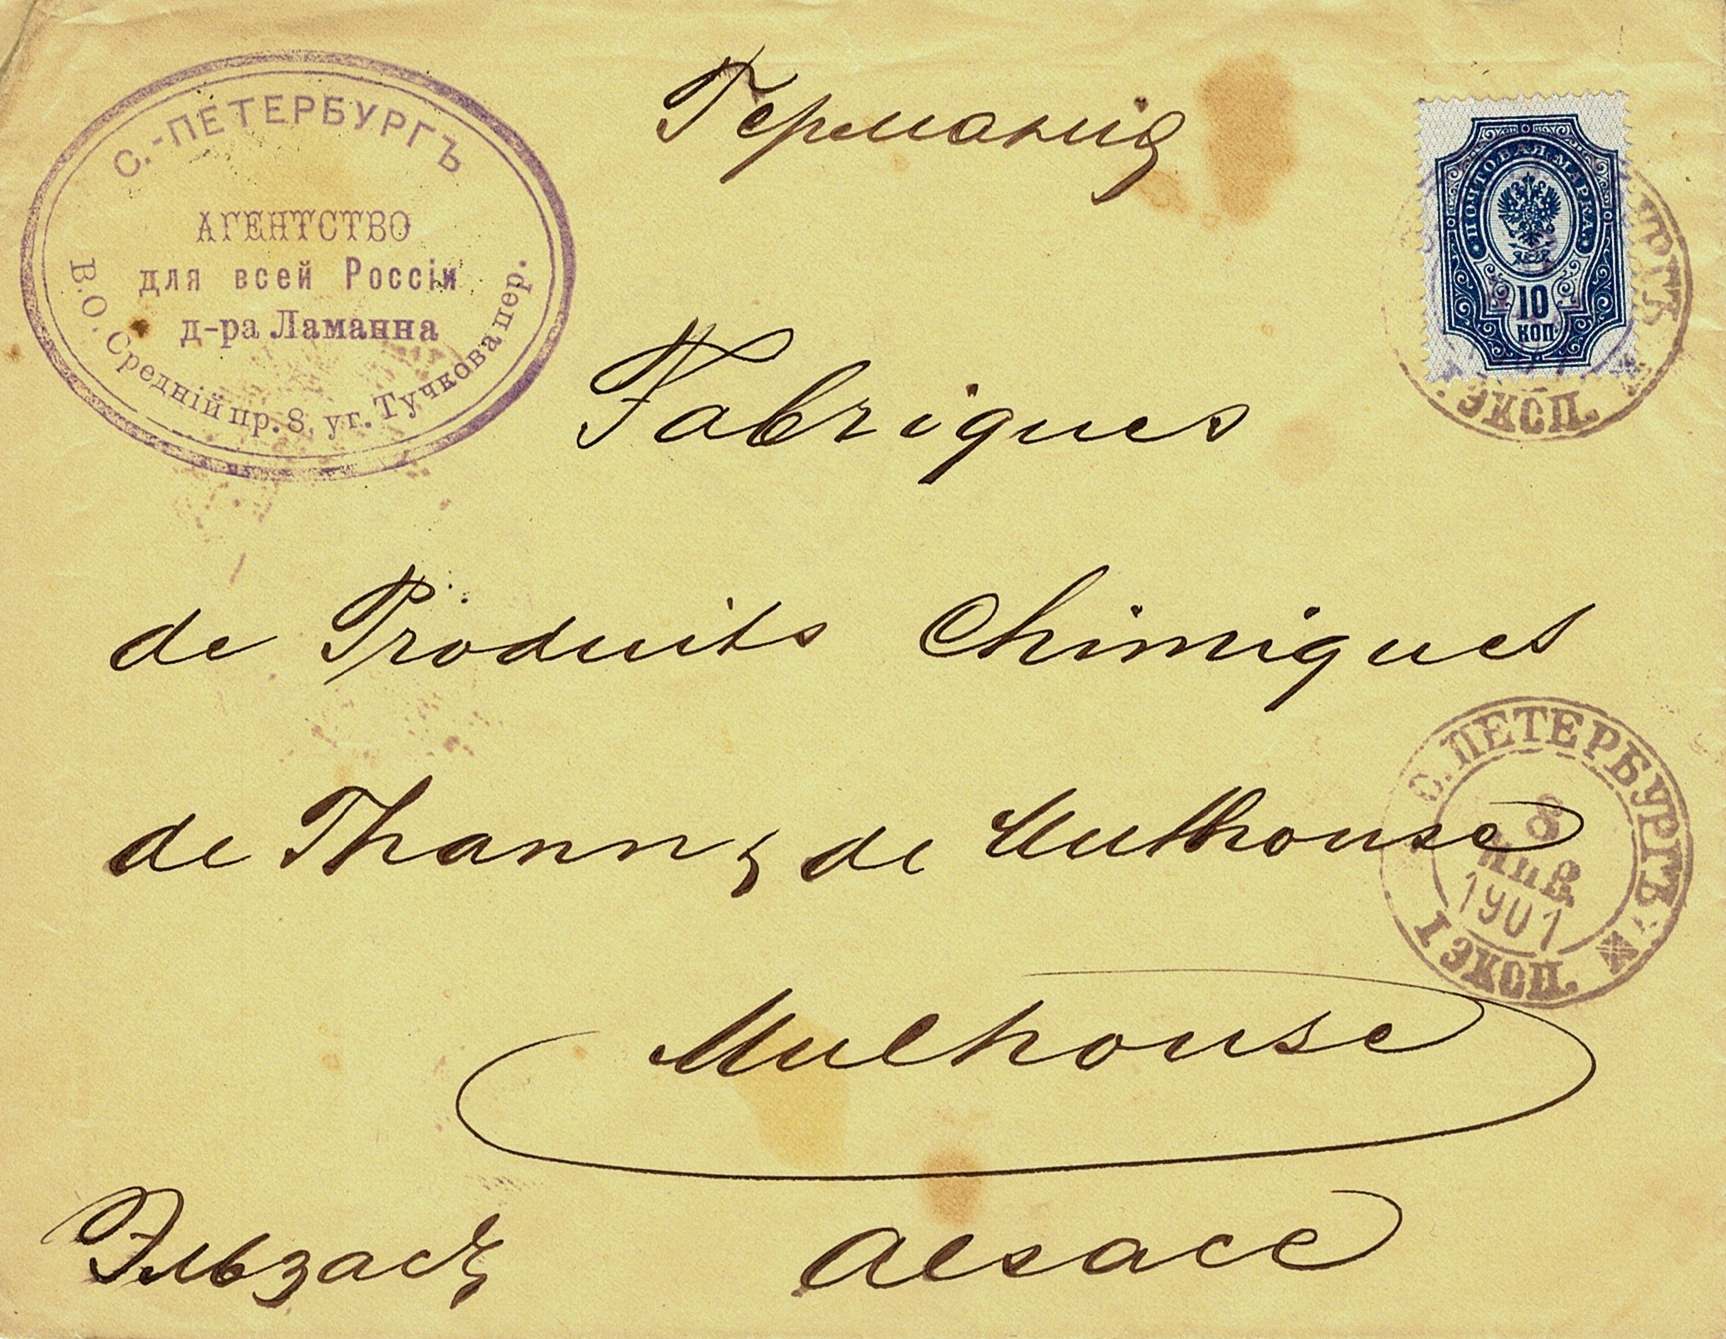 С.-ПЕТЕРБУРГЪ
АГЕНТСТВО
для всей Россіи
д-ра Ламанна
В.О. Средній пр. 8, уг. Тучкова пер.
Германія
ПОЧТОВАЯ МАРКА
10
КОП
УРГЪ
ЭКСП.
Fabriques
de Produits Chimiques
de Thann & de Mulhouse
С. ПЕТЕРБУРГЪ
8
ЯНВ
1901
I ЭКСП.
Mulhouse
Эльзасъ Alsace